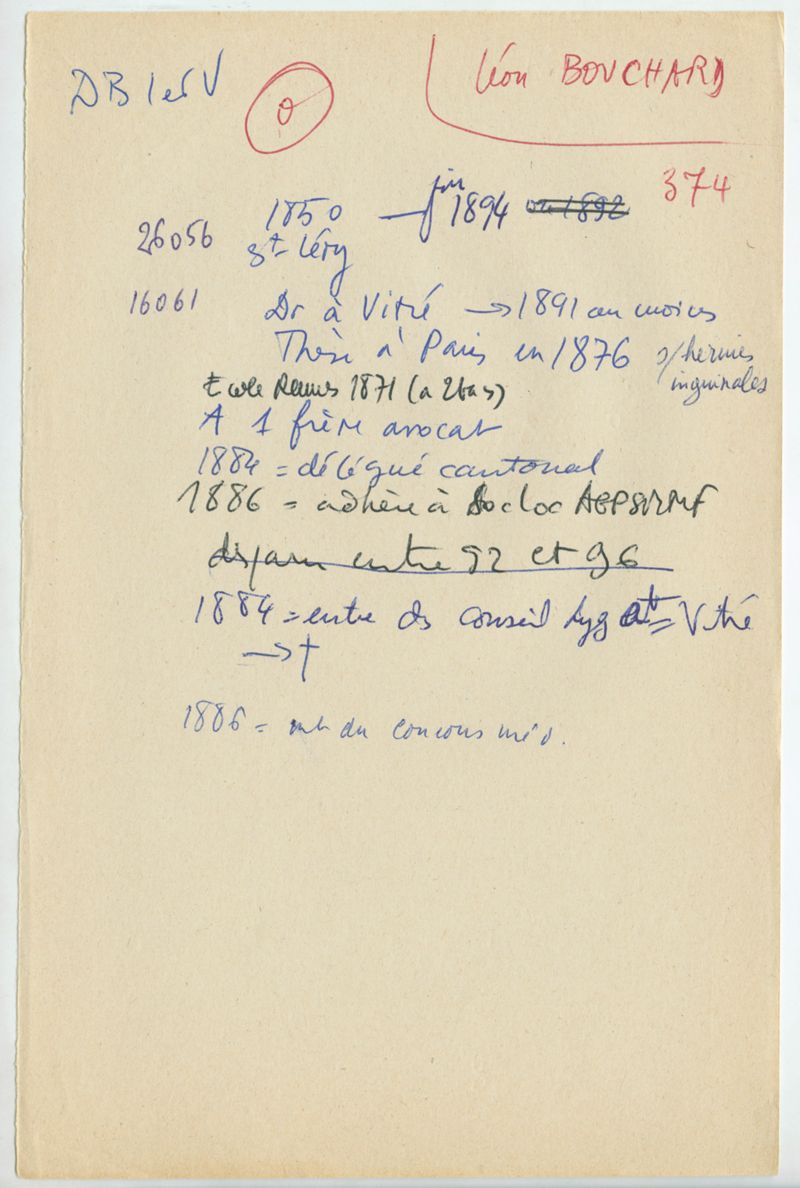 DB I et V
0
Léon BOUCHARD
374
26056 1850 → fin 1894 ou 1892
St Léry
16061 Dr à Vitré → 1891 au moins
Thèse à Paris en 1876 s/hernies inguinales
Ecole Rennes 1871 (a 21 ans)
A 1 frère avocat
1884 = délégué cantonal
1886 = adhère à Soc loc
disparu entre 92 et 96
1884 = entre ds conseil hyg Vitré
→ †
1886 = mb du concours méd.